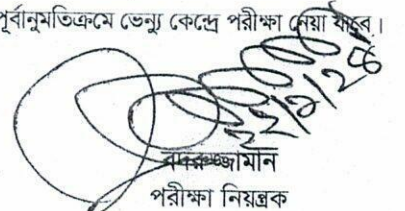 পূর্বানুমতিক্রমে ভেন্যু কেন্দ্রে পরীক্ষা নেয়া যাবে।
বদরুজ্জামান
পরীক্ষা নিয়ন্ত্রক